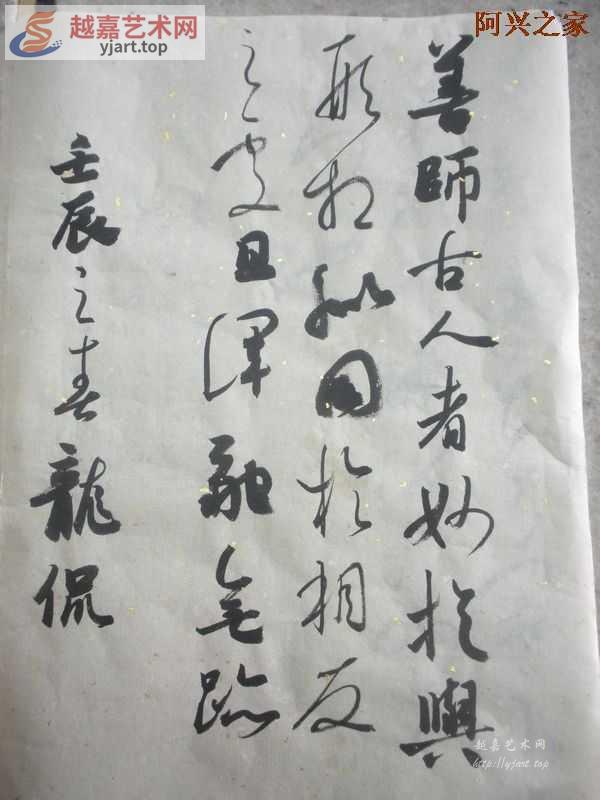 越嘉艺术网
yjart.top
阿兴之家
善師古人者妙於與
相似同於相反
之且渾融無跡
壬辰之春龍侃
越嘉艺术网
http://yjart.top